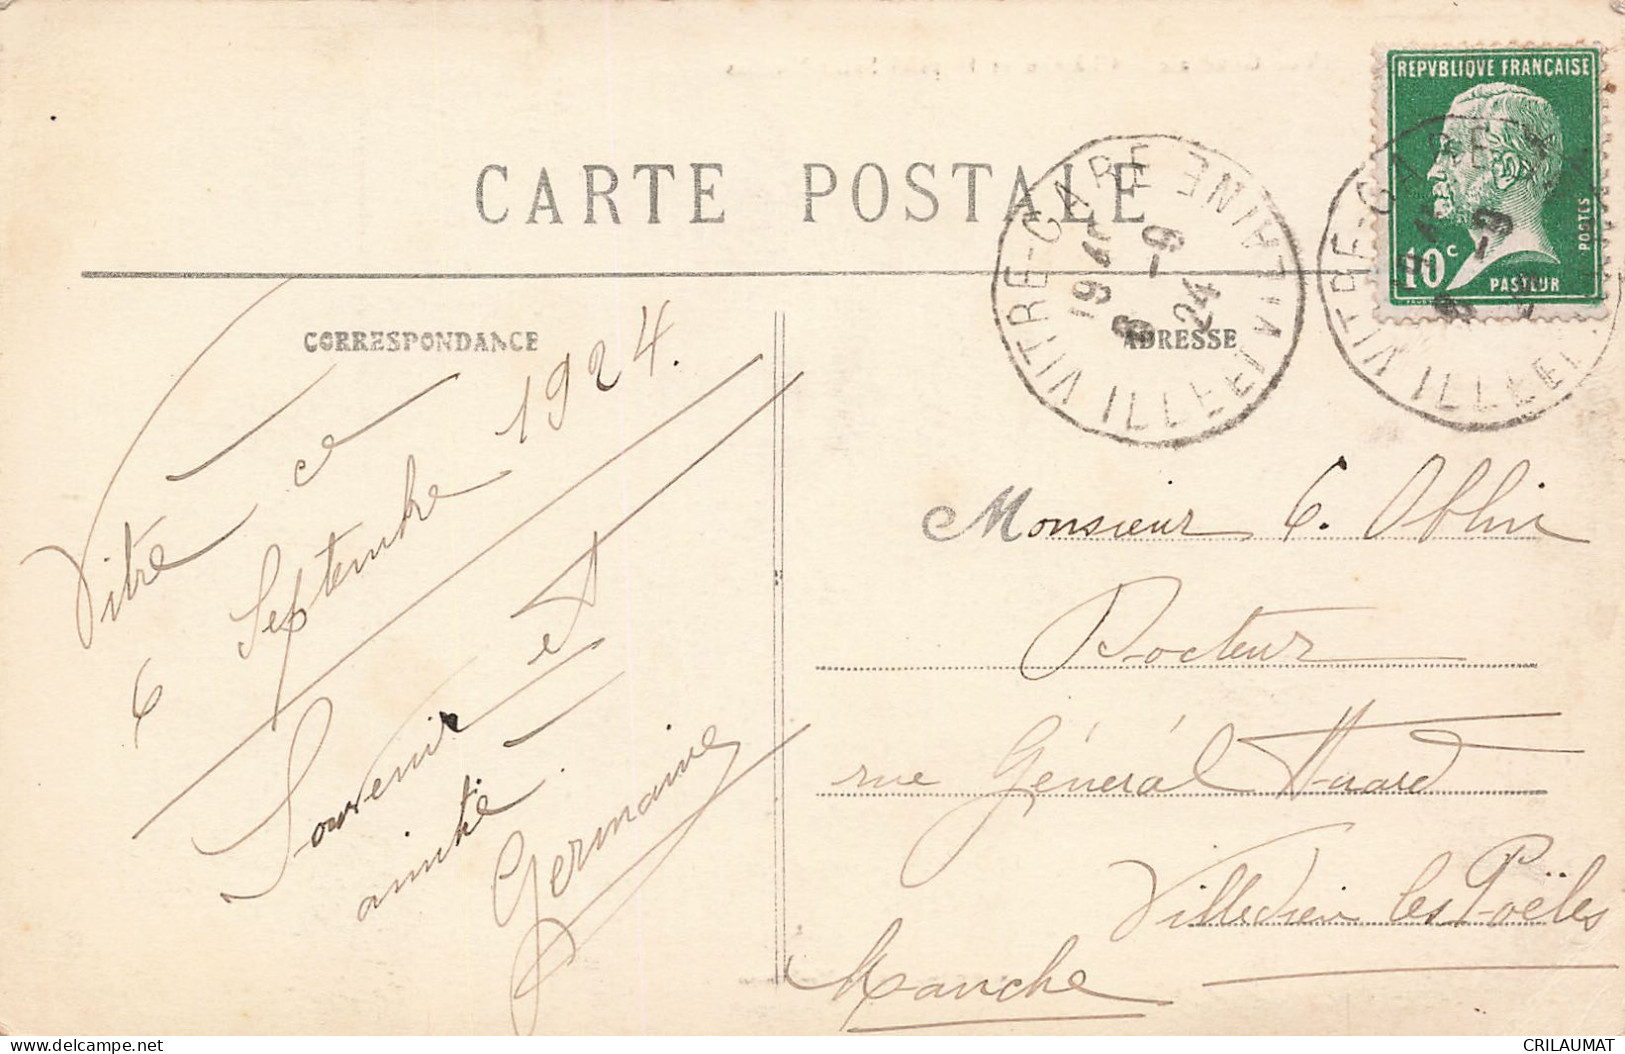 CARTE POSTALE
CORRESPONDANCE
ADRESSE
REPVBLIQVE FRANÇAISE
10c
POSTES
PASTEUR
VITRE-GARE ILLE ET VILAINE
6 -9
24
VITRE-GARE
Vitré ce
6 Septembre 1924.
Souvenir et
amitié.
Germaine
Monsieur Oblin
Docteur
rue Général Huard
Villedieu les Poëles
Manche
CRILAUMAT